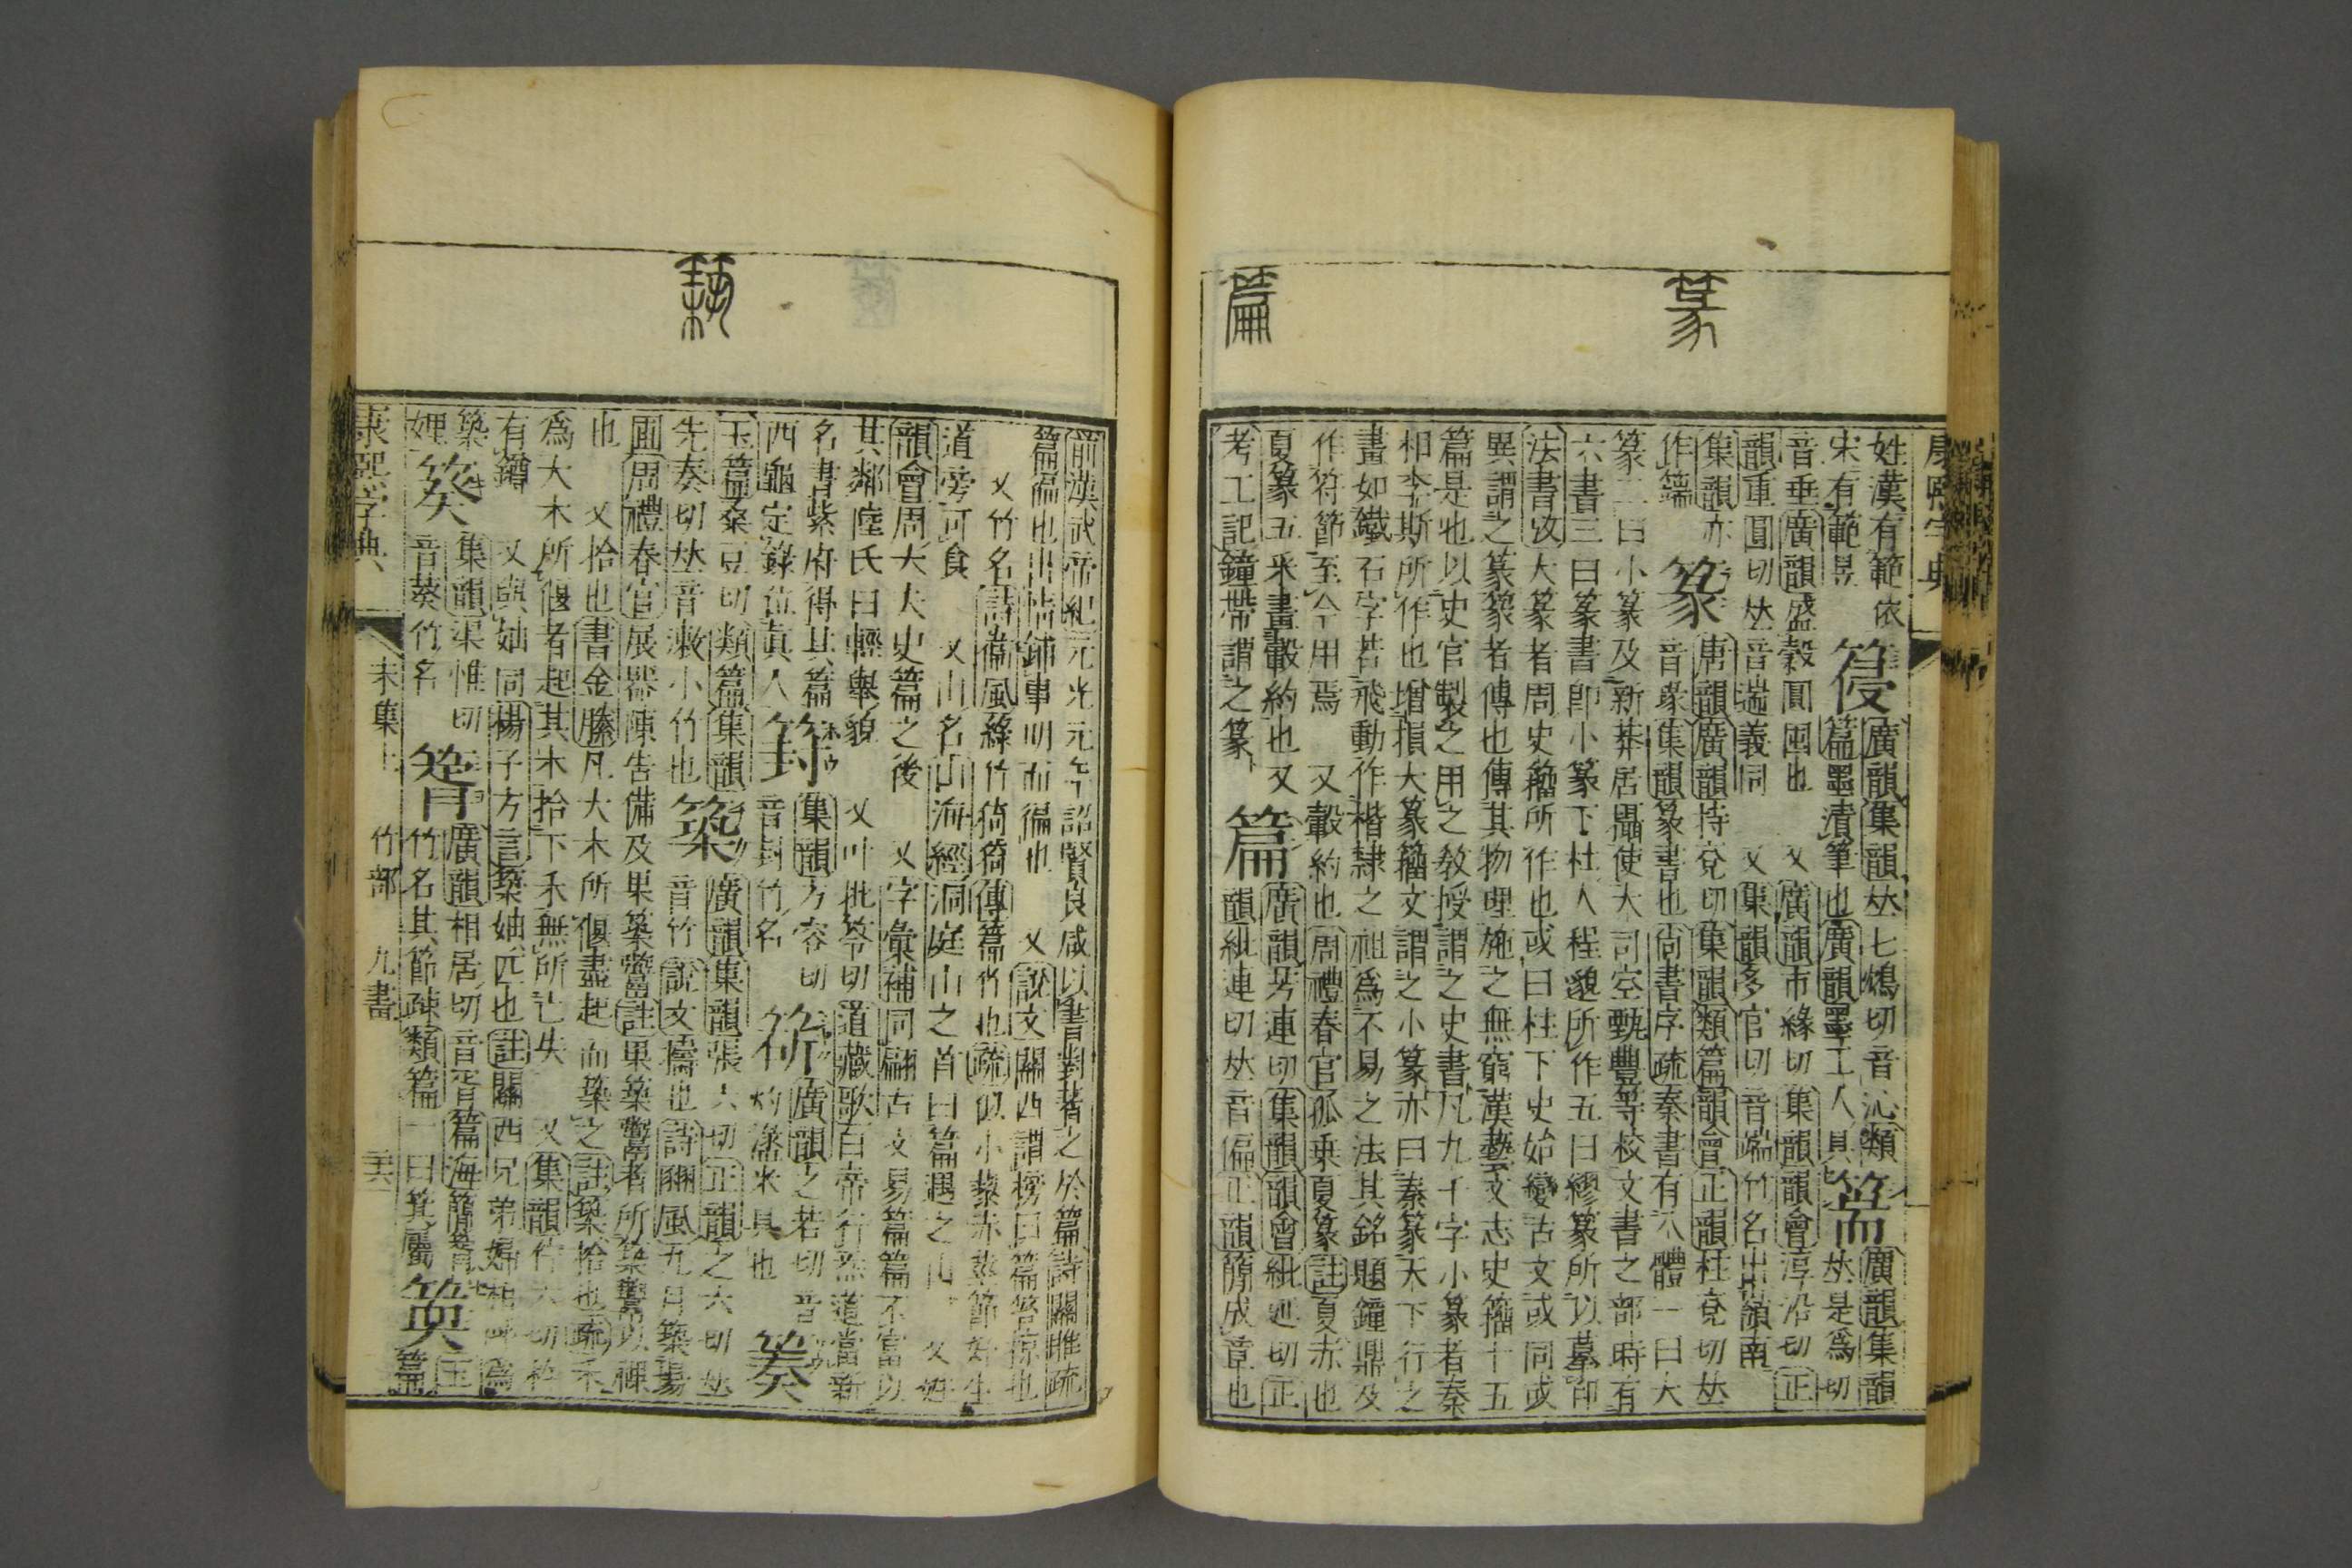 篆
篇
康熙字典
姓漢有範依 廣韻集韻𠀤七鴆切音沁類 篅 廣韻集韻
宋有範昱 篇墨漬筆也廣韻墨工人具 𠀤是爲切
音垂廣韻盛穀圓囤也 又廣韻市緣切集韻韻會淳沿切正
韻重圓切𠀤音遄義同 又集韻多官切音端竹名出嶺南
集韻亦 篆 唐韻廣韻持兗切集韻類篇韻會正韻柱兗切𠀤
作 音瑑集韻篆書也尚書序疏秦書有八體一曰大
篆二曰小篆及新莽居攝使大司空甄豐等校文書之部時有
六書三曰篆書卽小篆下杜人程邈所作五曰繆篆所以摹印
法書攷大篆者周史籀所作也或曰柱下史始變古文或同或
異謂之篆篆者傳也傳其物理施之無窮漢藝文志史籀十五
篇是也以史官製之用之敎授謂之史書凡九千字小篆者秦
相李斯所作也增損大篆籀文謂之小篆亦曰秦篆天下行之
畫如鐵石字若飛動作楷隸之祖爲不易之法其銘題鐘鼎及
作符節至今用焉 又轂約也周禮春官孤乗夏篆註夏赤也
夏篆五采畫轂約也又 篇 廣韻芳連切集韻韻會紕延切正
考工記鐘帶謂之篆 韻紕連切𠀤音偏正韻簡成章也
築
前漢武帝紀元光元年詔賢良咸以書對著之於篇詩關雎疏
篇徧也出情鋪事明而徧也 又說文關西謂榜曰篇笞掠也
又竹名詩衞風綠竹猗猗傳篇竹也疏似小藜赤莖節好生
道旁可食 又山名山海經洞庭山之首曰篇遇之山 又姓
韻會周大夫史篇之後 又字彙補同翩古文易篇篇不富以
其鄰陸氏曰輕舉貌 又叶批笭切道藏歌白帝行烝道當新
名書紫府得其篇 集韻方容切 廣韻之若切音
西龜定錄位眞人 音封竹名 灼漉米具也
玉篇桑豆切類篇集韻 築 廣韻集韻張六切正韻之六切𠀤
先奏切𠀤音漱小竹也 音竹說文擣也詩豳風九月築場
圃周禮春官展器陳告備及果築鬻註果築鬻者所築鬻以祼
也 又拾也書金縢凡大木所偃盡起而築之註築拾也疏禾
爲大木所偃者起其木拾下禾無所亡失 又集韻竹六切杵
有鐏 又與妯同揚子方言築妯匹也註關西兄弟婦相呼爲
築 集韻渠惟切 廣韻相居切音胥篇海簡 玉
娌 音葵竹名 竹名其節疎類篇一曰箕屬 篇
康熙字典 未集上 竹部 九畫